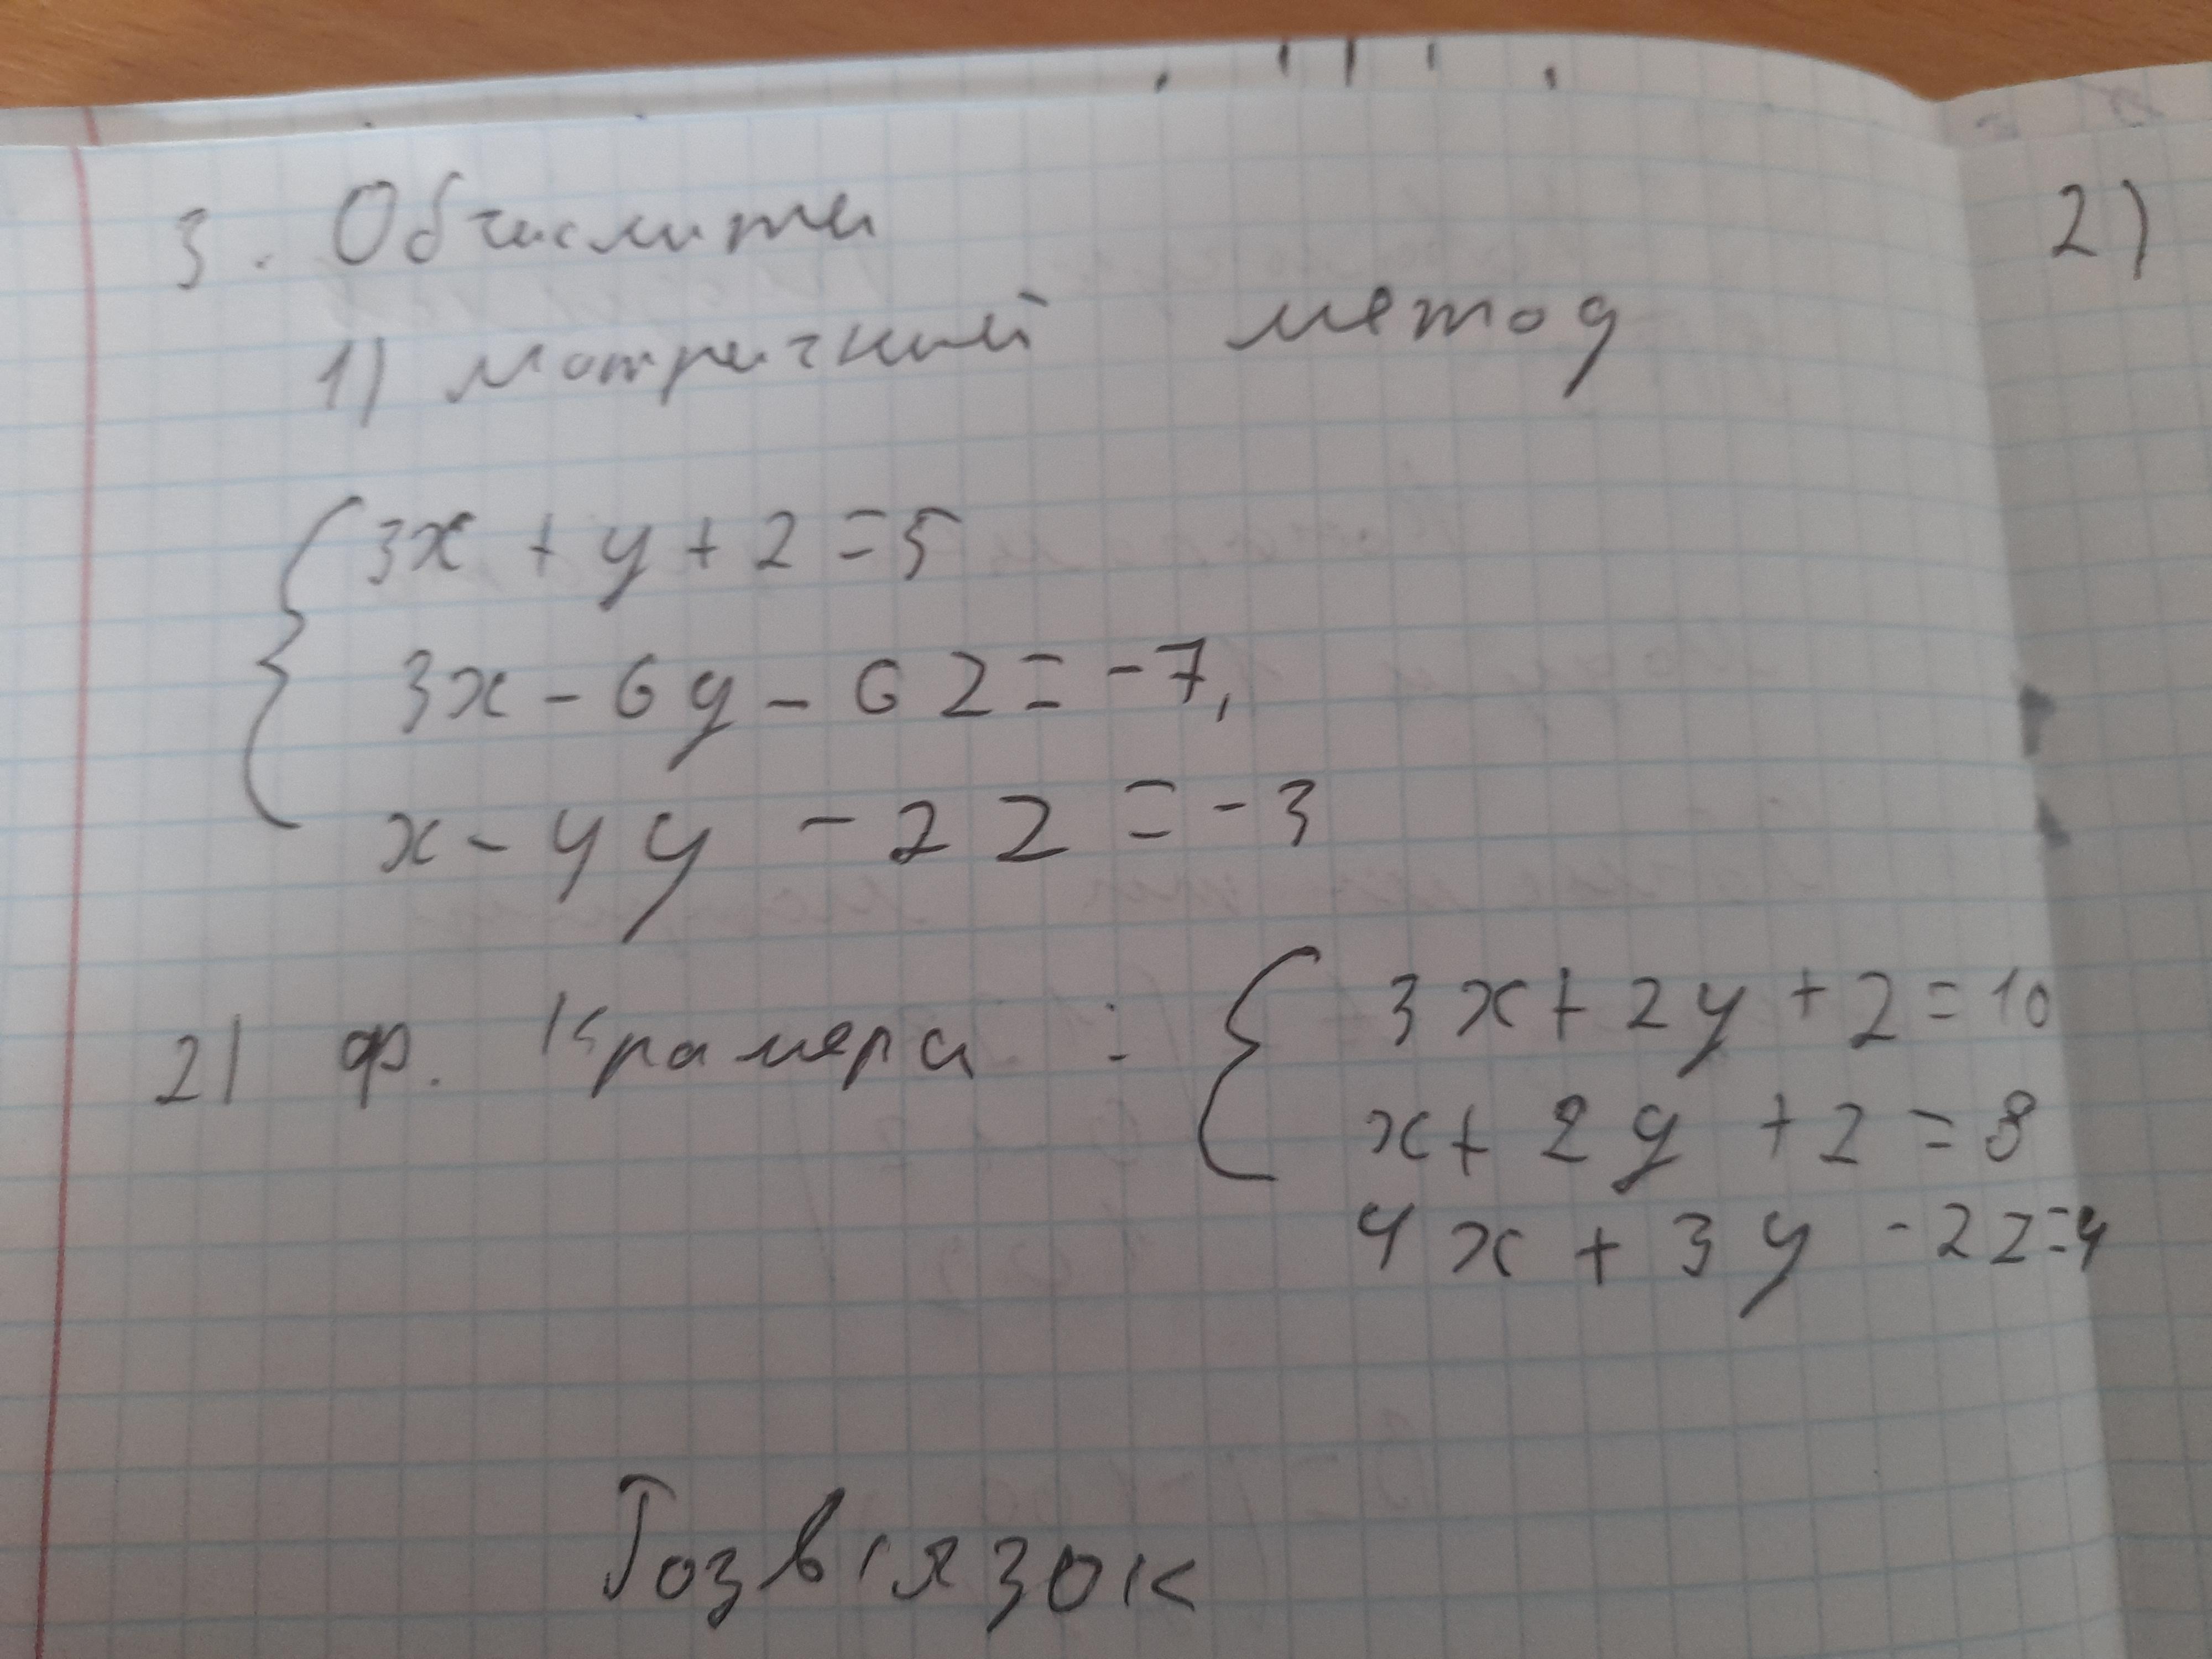 3. Обчислити
1) матричний метод
3x + y + z = 5
3x - 6y - 6z = -7,
x - 4y - 2z = -3
2) ф. Крамера :
3x + 2y + z = 10
x + 2y + z = 8
4x + 3y - 2z = 4
Розв'язок
2)